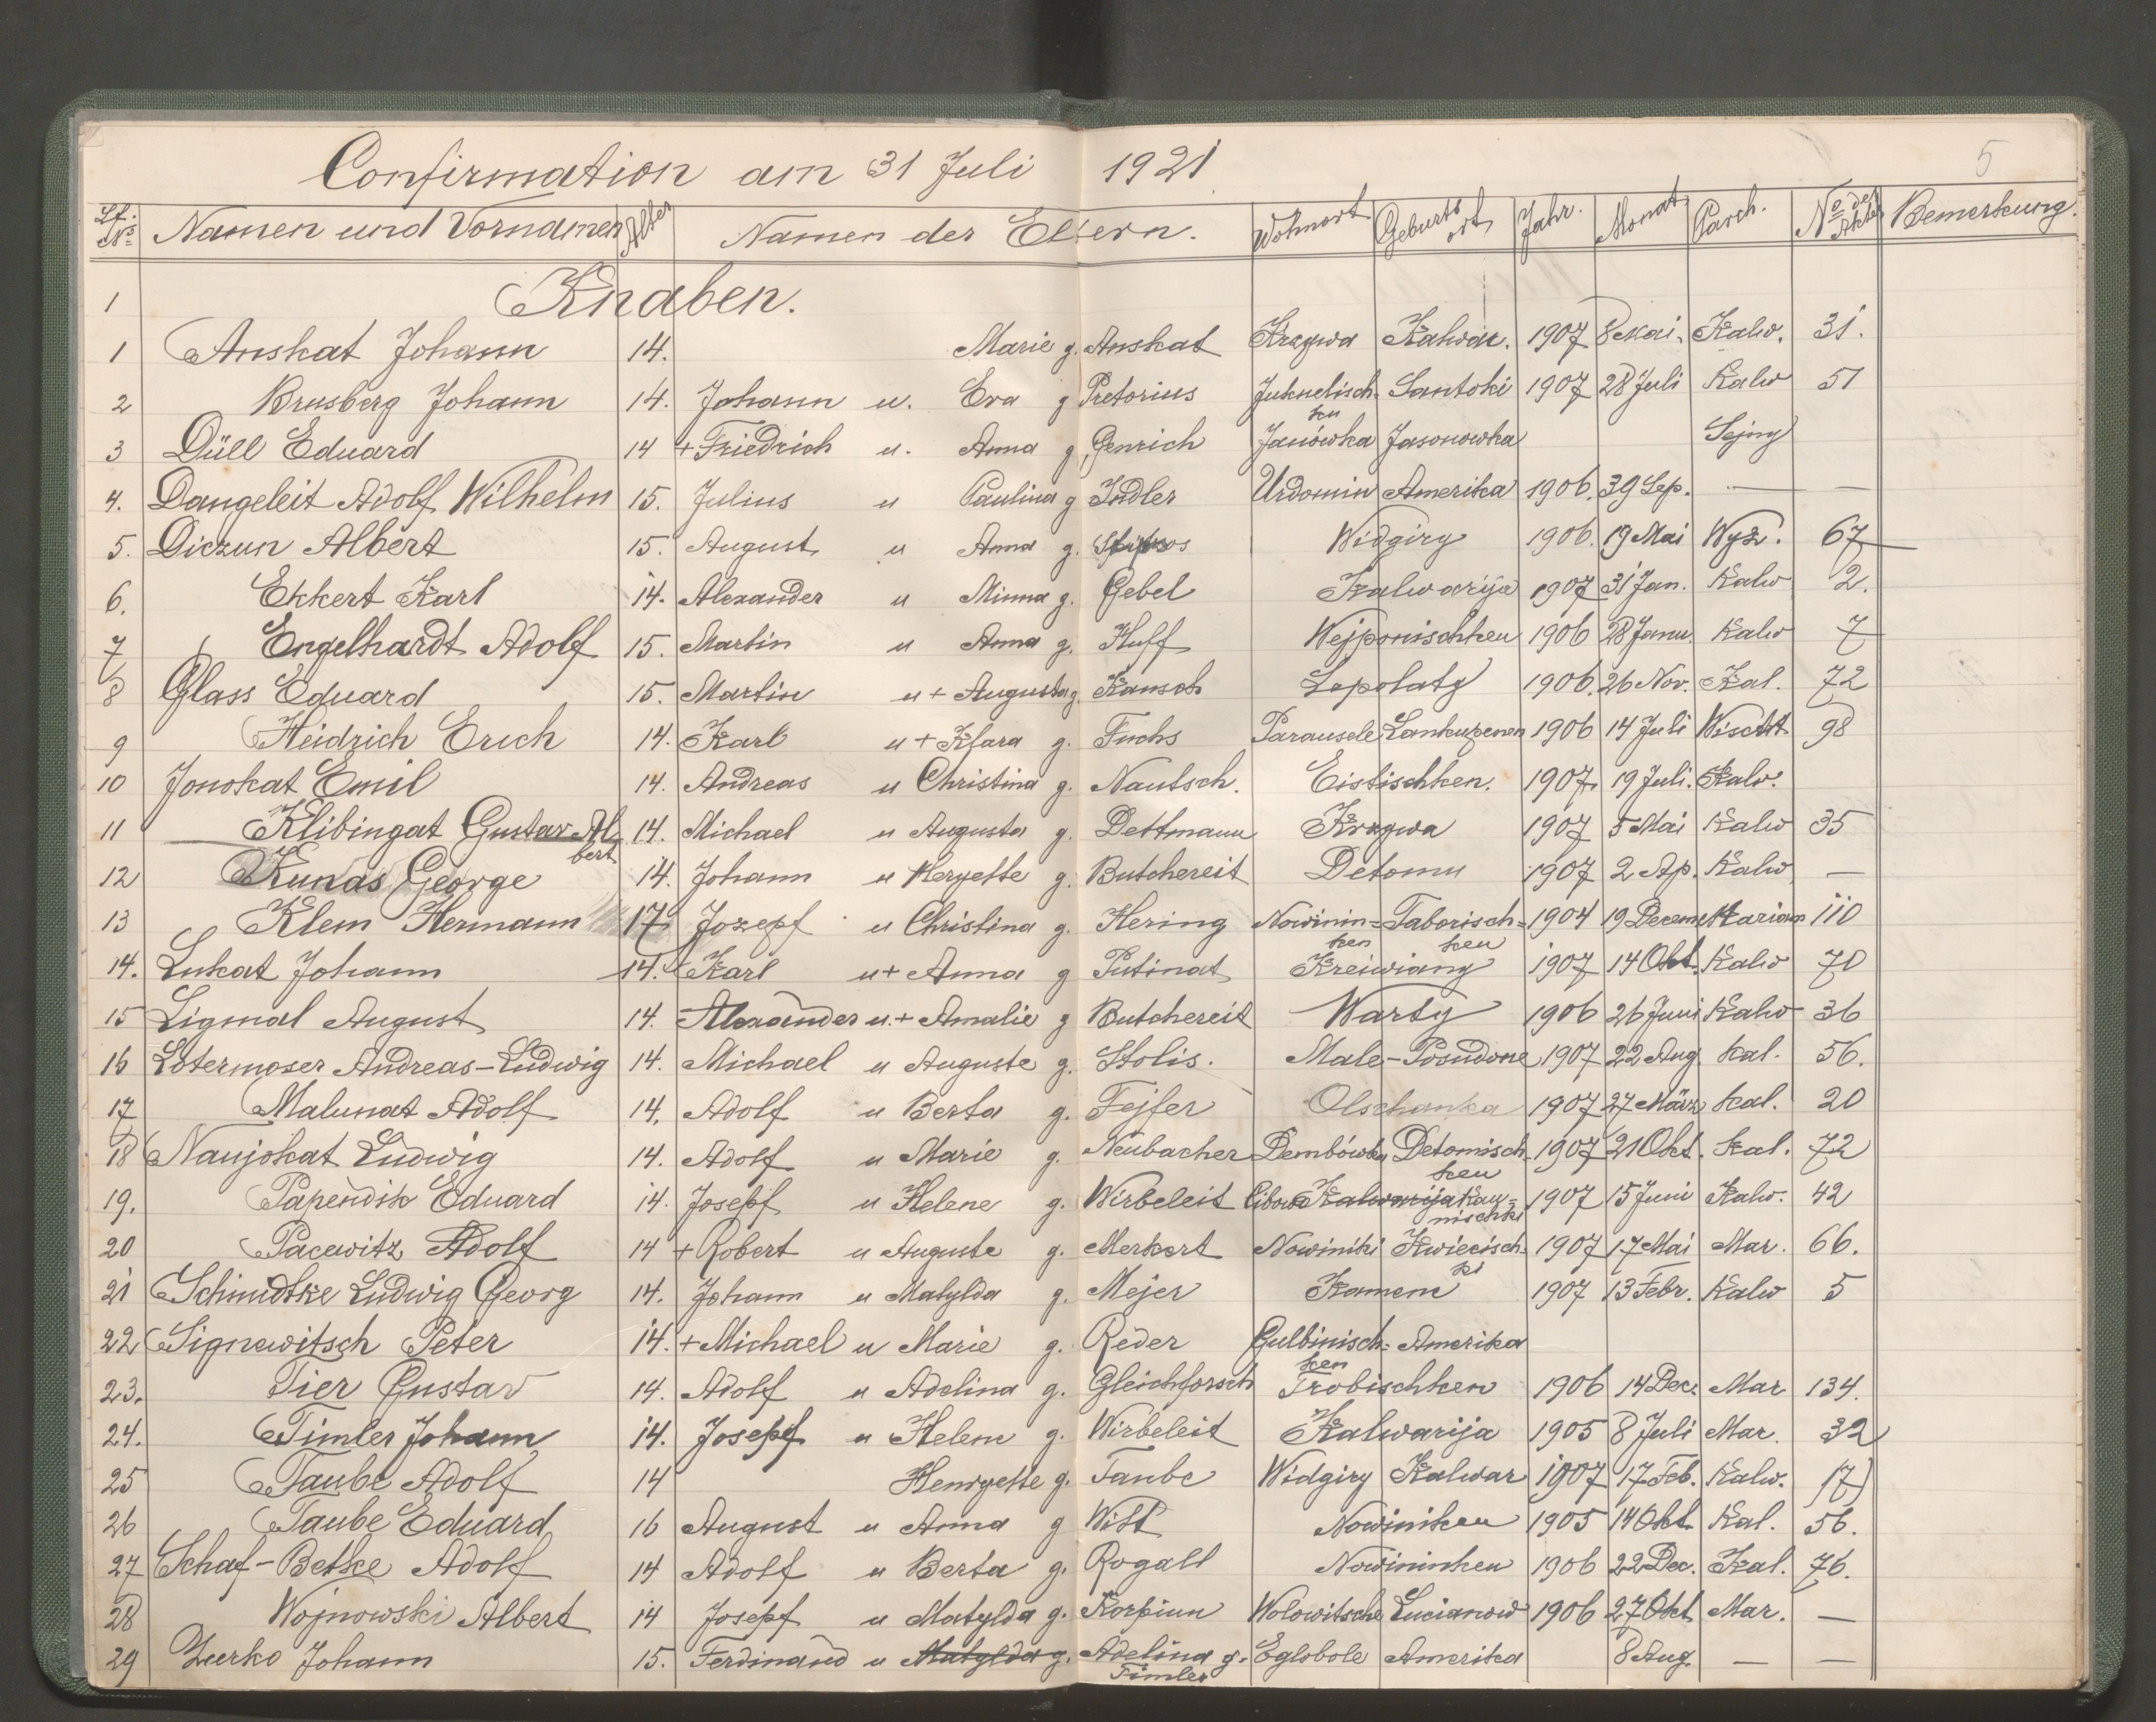 Confirmation am 31 Juli 1921
5
Lf. No Namen und Vornamen Alter Namen der Eltern. Wohnort Geburtsort Jahr. Monat Parch. No der Akte Bemerkung.
1 Knaben.
1 Anskat Johann 14. Marie g. Anskat Kragwa Kalwar. 1907 8 Mai. Kalw. 31.
2 Brusberg Johann 14. Johann u. Eva g Pretorius Juknelisch- Santoki 1907 28 Juli Kalw 51
ken
3 Düll Eduard 14 + Friedrich u. Anna g Genrich Janówka Jasonowka Sejny
4. Dangeleit Adolf Wilhelm 15. Julius u Paulina g Indler Urdomin Amerika 1906. 39 Sep. — —
5. Diczun Albert 15. August u Anna g. Widgiry 1906. 19 Mai Wyż. 67
6. Ekkert Karl 14. Alexander u Minna g. Gebel Kalwarija 1907 31 Jan. Kalw 2.
7 Engelhardt Adolf 15. Martin u Anna g. Huff Wejponischken 1906 28 Janu. Kalw 7
8 Glass Eduard 15. Martin u + Augusta g. Kansch Lepolaty 1906. 26 Nov. Kal. 72
9 Heidrich Erich 14. Karl u + Klara g. Fuchs Parausele Lankupenen 1906 14 Juli Wischt 98
10 Jonokat Emil 14. Andreas u Christina g. Nautsch. Eistischken. 1907. 19 Juli. Kalv.
11 Klibingat Gustav Al 14. Michael u Augusta g. Dettmann Kragwa 1907 5 Mai Kalw 35
bert
12 Kunas George 14. Johann u Heryette g. Butchereit Detomu 1907 2 Ap. Kalw —
13 Klem Hermann 17 Jozepf u Christina g. Hering Nowinin= Taborisch= 1904 19 Decem Mariam 110
ken ken
14. Lukat Johann 14. Karl u + Anna g Putinat Kreiwiany 1907 14 Okt. Kalw 70
15 Ligmal August 14. Alexander u. + Amalie g Butchereit Warty 1906 26 Juni Kalw 36
16 Lotermoser Andreas-Ludwig 14. Michael u Auguste g. Stolis. Male-Posudone 1907 22 Aug. Kal. 56.
17 Malunat Adolf 14. Adolf u Berta g. Fejfer Olschanka 1907 27 März Kal. 20
18 Naujokat Ludwig 14. Adolf u Marie g. Neubacher Dembówka Detomisch- 1907 21 Okt. Kal. 72
ken
19. Papendik Eduard 14. Josepf u Helene g. Wirbeleit Cibowa Kalwarija Kau= 1907 15 Juni Kalw. 42
nischki
20 Pacewitz Adolf 14 + Robert u Auguste g. Merkert Nowiniki Kwiecisch- 1907 17 Mai Mar. 66.
ki
21 Schimdtke Ludwig Georg 14. Johann u Matylda g. Mejer Kamene 1907 13 Febr. Kalw 5
22 Signewitsch Peter 14. + Michael u Marie g. Reder Gulbinisch= Amerika
ken
23. Tier Gustav 14. Adolf u Adelina g. Gleichforsch Trobischken 1906 14 Dec. Mar 134.
24. Timler Johann 14. Josepf u Helene g. Wirbeleit Kalwarija 1905 8 Juli Mar. 32
25 Taube Adolf 14 Henryette g. Taube Widgiry Kalwar 1907 17 Feb. Kalw. 17
26 Taube Eduard 16 August u Anna g Witt Nowiniken 1905 14 Okt. Kal. 56.
27 Schaf-Betke Adolf 14 Adolf u Berta g. Rogall Nowininken 1906 22 Dec. Kal. 76.
28 Wojnowski Albert 14 Josepf u Matylda g. Korpiun Wolowitsche Lucianow 1906 27 Okt Mar. —
29 Zurko Johann 15. Ferdinand u Matylda g. Adelina g. Eglobole Amerika 8 Aug. — —
Timler